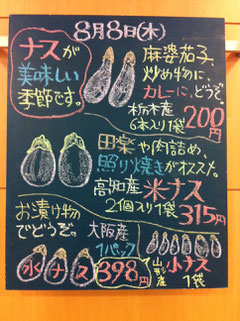 8月8日(木)
ナスが
美味しい
季節です。
麻婆茄子、
炒め物に、
カレーに、どうぞ。
栃木産
6本入り1袋
200円
田楽や肉詰め、
照り焼きがオススメ。
高知産 米ナス
2個入り1袋 315円
お漬け物
でどうぞ。
大阪産
1パック
水ナス 398円
山形産
小ナス
1袋